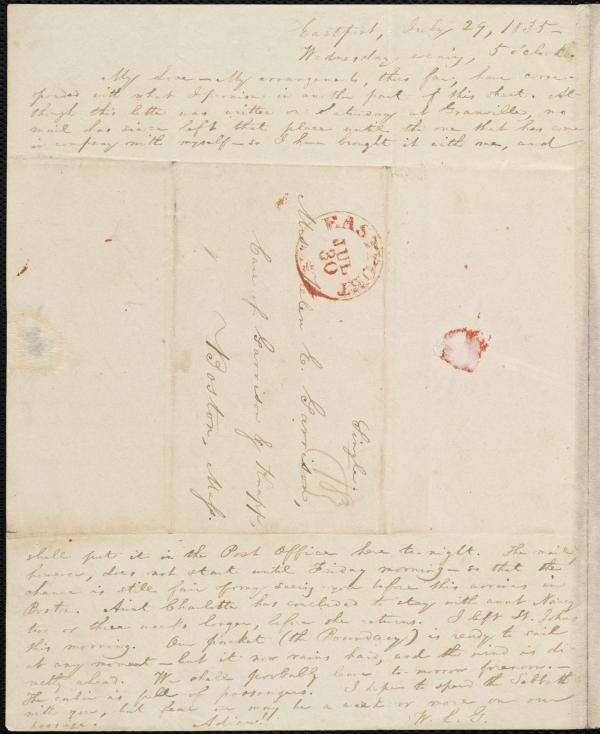 Eastport, July 29, 1835—
Wednesday evening, 5 o'clock.
My Love—My arrangements, thus far, have corres-
ponded with what I promise in another part of this sheet. Al-
though this letter was written on Saturday at Granville, no
mail has since left that place until the one that has come
in company with myself—so I have brought it with me, and
EASTPORT
JUL
30
Mrs. Helen E. Garrison,
Care of Garrison & Knapp,
Boston, Mass.
Single.
shall put it in the Post Office here to-night. The mail,
however, does not start until Friday morning—so that the
chance is still fair of my seeing you before this arrives in
Boston. Aunt Charlotte has concluded to stay with aunt Nancy
two or three weeks longer, before she returns. I left St. Johns
this morning. Our packet (the Boundary) is ready to sail
at any moment—but it now rains hard, and the wind is di-
rectly ahead. We shall probably leave to-morrow forenoon.—
The cabin is full of passengers. I hope to spend the Sabbath
with you, but fear we may be a week or more on our
passage. Adieu!! W. L. G.